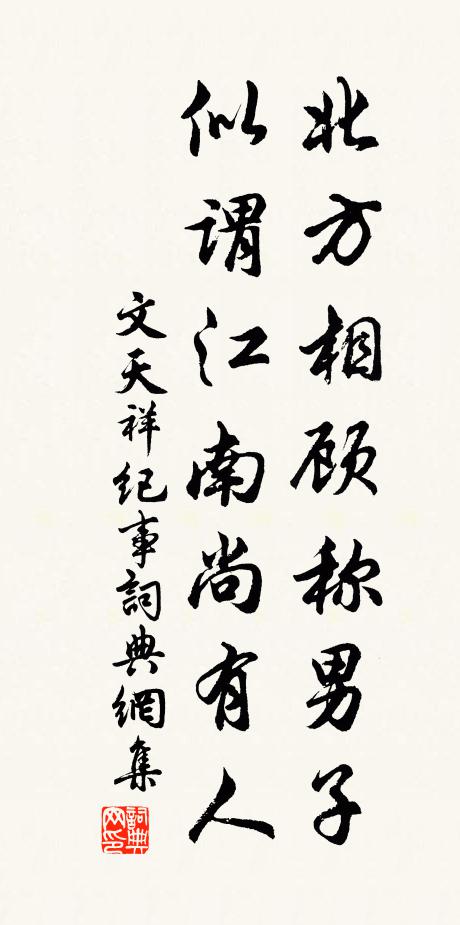 北方相顾称男子
似谓江南尚有人
文天祥纪事詞典網集
詞典网印